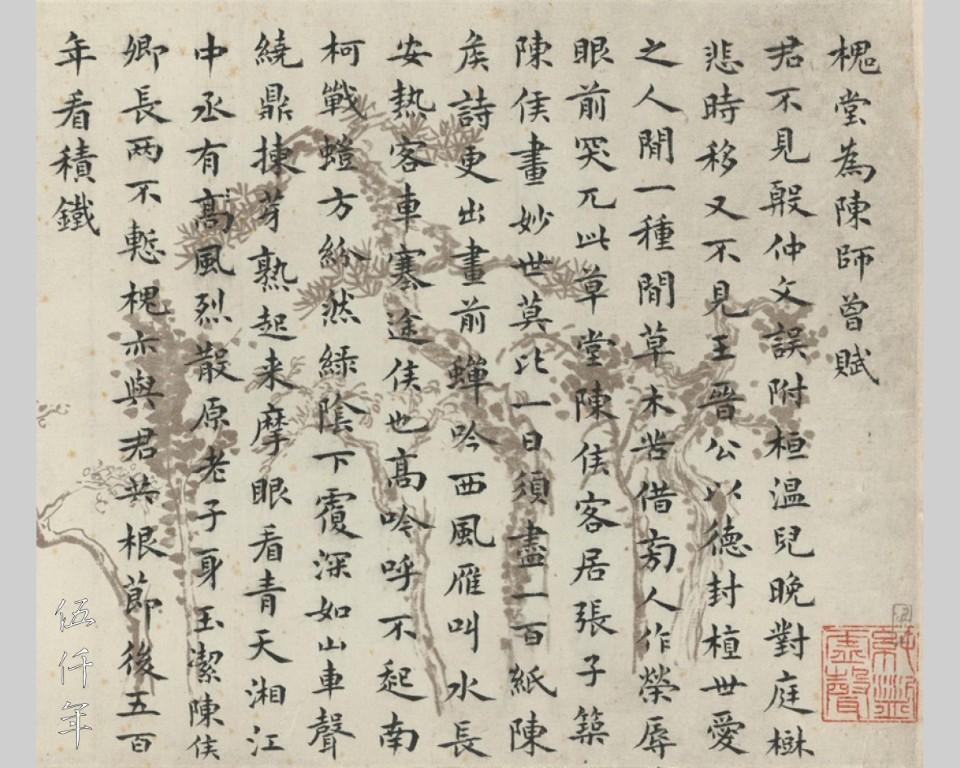 槐堂為陳師曾賦
君不見殷仲文誤附桓溫兒晚對庭樹
悲時移又不見王晉公以德封植世愛
之人間一種閒草木苦借前人作榮辱
眼前突兀此草堂陳侯客居張子築
陳侯畫妙世莫比一日須盡一百紙陳
侯詩更出畫前蟬吟西風雁叫水長
安熱客車塞途侯也高吟呼不起南
柯戰螘方紛然綠陰下覆深如山車聲
繞鼎揀芽熟起来摩眼看青天湘江
中丞有高風烈散原老子身玉潔陳侯
卿長两不慙槐亦與君共根節後五百
年看積鐵
伍仟年